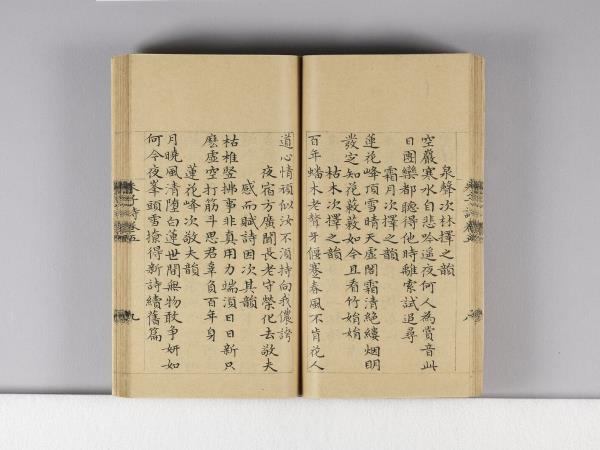 泉聲次林擇之韻
空巖寒水自悲吟遥夜何人為賞音此
日團欒都聽得他時離索試追尋
霜月次擇之韻
蓮花峰頂雪晴天虛閤霜清絕縷烟明
發定知花蔌蔌如今且看竹娟娟
枯木次擇之韻
百年蟠木老聱牙偃蹇春風不肯花人
道心情頑似汝不須持向我儂誇
夜宿方廣聞長老守榮化去敬夫
感而賦詩因次其韻
枯椎竪拂事非真用力端須日日新只
麽虛空打筋斗思君辜負百年身
蓮花峰次敬夫韻
月曉風清墮白蓮世間無物敢爭妍如
何今夜峯頭雪撩得新詩續舊篇
子詩卷五
九